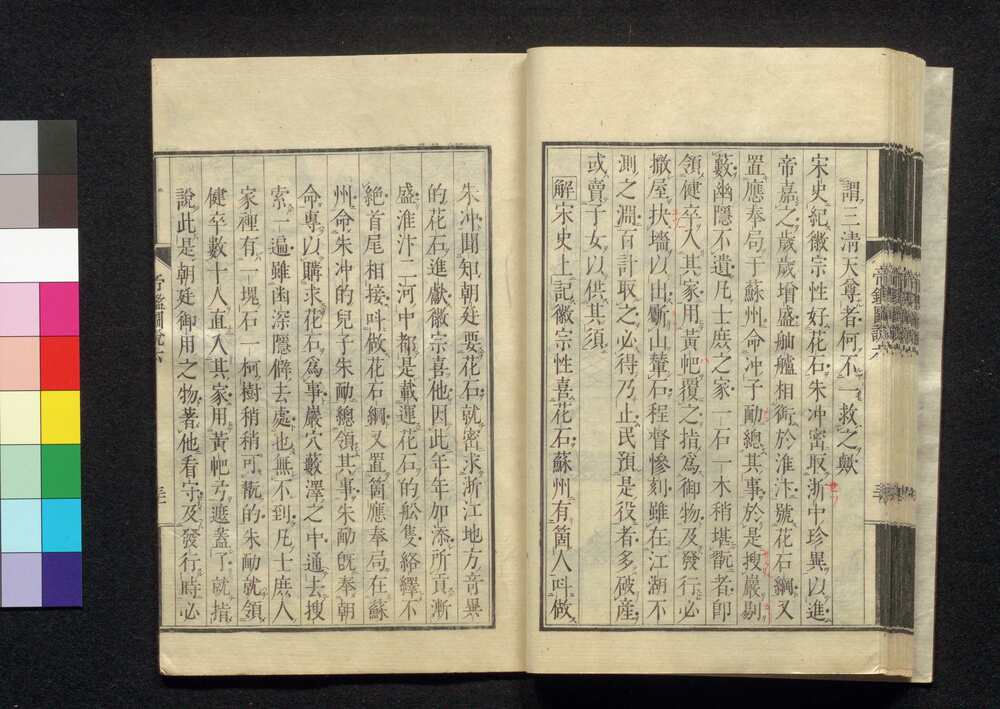 謂三清天尊者何不一救之歟
宋史紀徽宗性好花石朱冲密取浙中珍異以進
帝嘉之歲歲增盛舳艫相銜於淮汴號花石綱又
置應奉局于蘇州命冲子勔總其事於是搜巖剔
藪幽隱不遺凡士庶之家一石一木稍堪翫者即
領健卒入其家用黃帊覆之指爲御物及發行必
撤屋抉墻以出斸山輦石程督慘刻雖在江湖不
測之淵百計取之必得乃止民預是役者多破産
或賣子女以供其須
解宋史上記徽宗性喜花石蘇州有箇人呌做
朱冲聞知朝廷要花石就密求浙江地方奇異
的花石進獻徽宗喜他因此年年加添所貢漸
盛淮汴二河中都是載運花石的舩隻絡繹不
絶首尾相接呌做花石綱又置箇應奉局在蘇
州命朱冲的兒子朱勔總領其事朱勔旣奉朝
命專以購求花石爲事巖穴藪澤之中通去搜
索一遍雖幽深隱僻去處也無不到凡士庶人
家裡有一塊石一柯樹稍稍可翫的朱勔就領
健卒數十人直入其家用黃帊子遮蓋了就指
說此是朝廷御用之物著他看守及發行時必
帝鑑圖說六